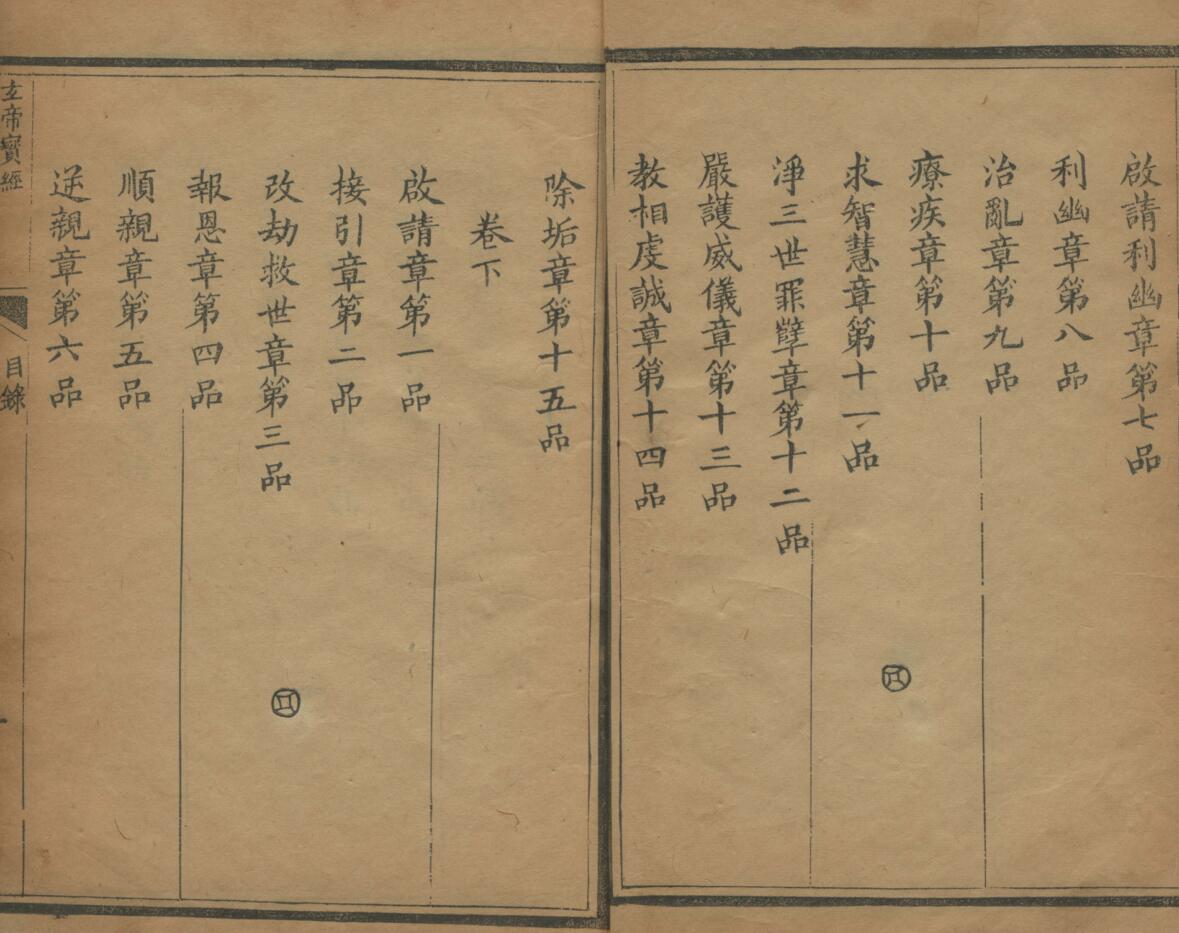 啟請利幽章第七品
利幽章第八品
治亂章第九品
療疾章第十品
求智慧章第十一品
淨三世罪孽章第十二品
嚴護威儀章第十三品
教相虔誠章第十四品
除垢章第十五品
卷下
啟請章第一品
接引章第二品
改劫救世章第三品
報恩章第四品
順親章第五品
逆親章第六品
帝寶經
目錄